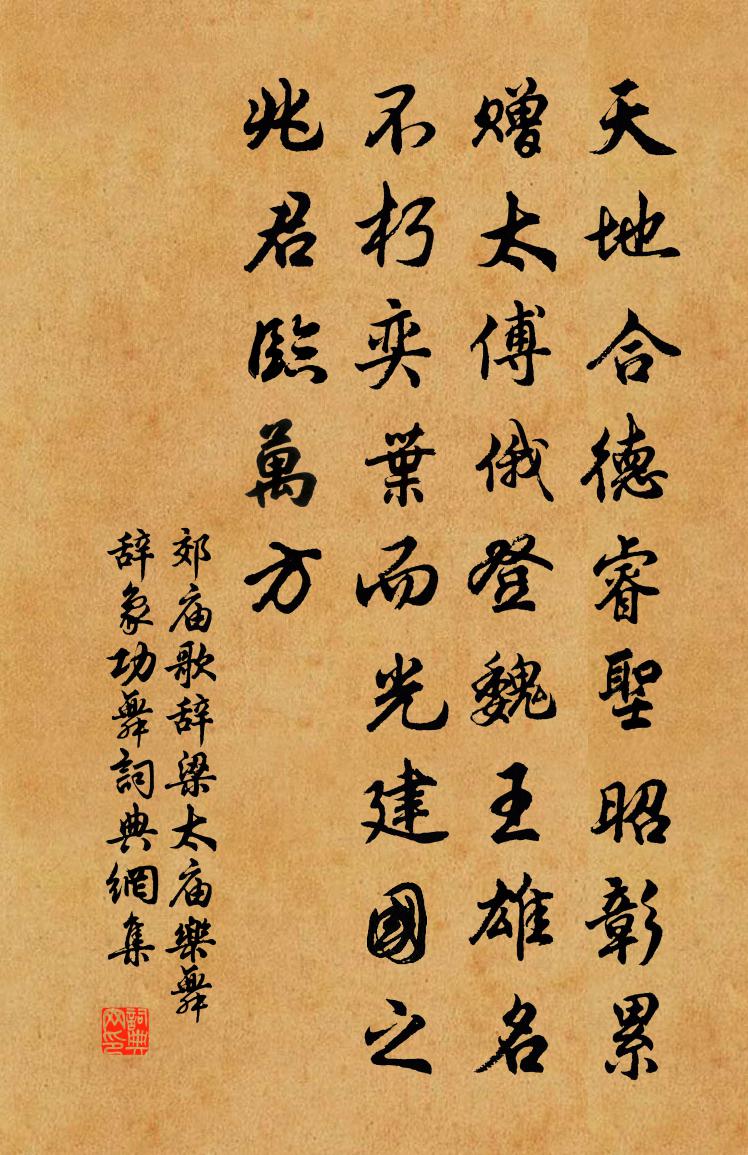 天地合德睿聖昭彰累
赠太傅俄登魏王雄名
不朽奕葉而光建國之
兆君臨萬方
郊庙歌辞梁太庙樂舞
辞象功舞詞典網集
詞典
网印